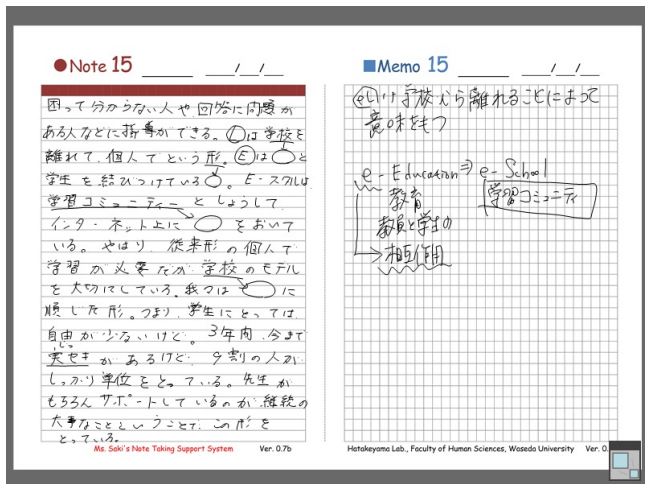 Note 15
困って分からない人や回答に問題が
ある人などに指導ができる。Lは学校を
離れて、個人でという形。Eは と
学生を結びつけている 。E-スクルは
学習コミュニティーとしょうして、
インターネット上に をおいて
いる。やはり、従来形の個人で
学習が必要だが学校のモデル
を大切にしている。我々は に
順した形。つまり、学生にとっては
自由が少ないけど。3年間、今まで
じっ
実セキがあるけど、9割の人が
しっかり単位をとっている。先生が
もちろんサポートしているのが継続の
大事なことということで、この形を
とっている。
Ms. Saki's Note Taking Support System Ver. 0.7b
Memo 15
eLは学校から離れることによって
意味をもつ
e-Education⇒e-School
教育 学習コミュニティ
教員と学生の
→相互作用
Hatakeyama Lab., Faculty of Human Sciences, Waseda University Ver. 0.